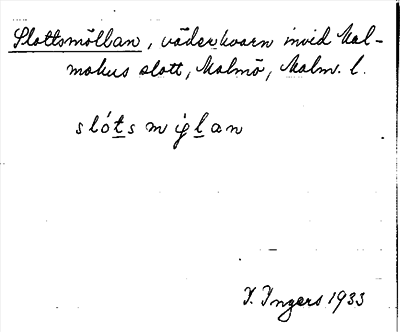 Slottsmöllan, väderkvarn invid Mal-
mohus slott, Malmö, Malm. l.
slótsmiglan
I. Ingers 1933